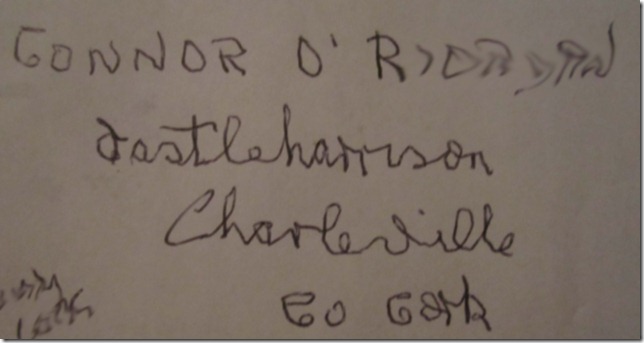 CONNOR O' RIORDAN
Castleharrison
Charleville
Co Cork